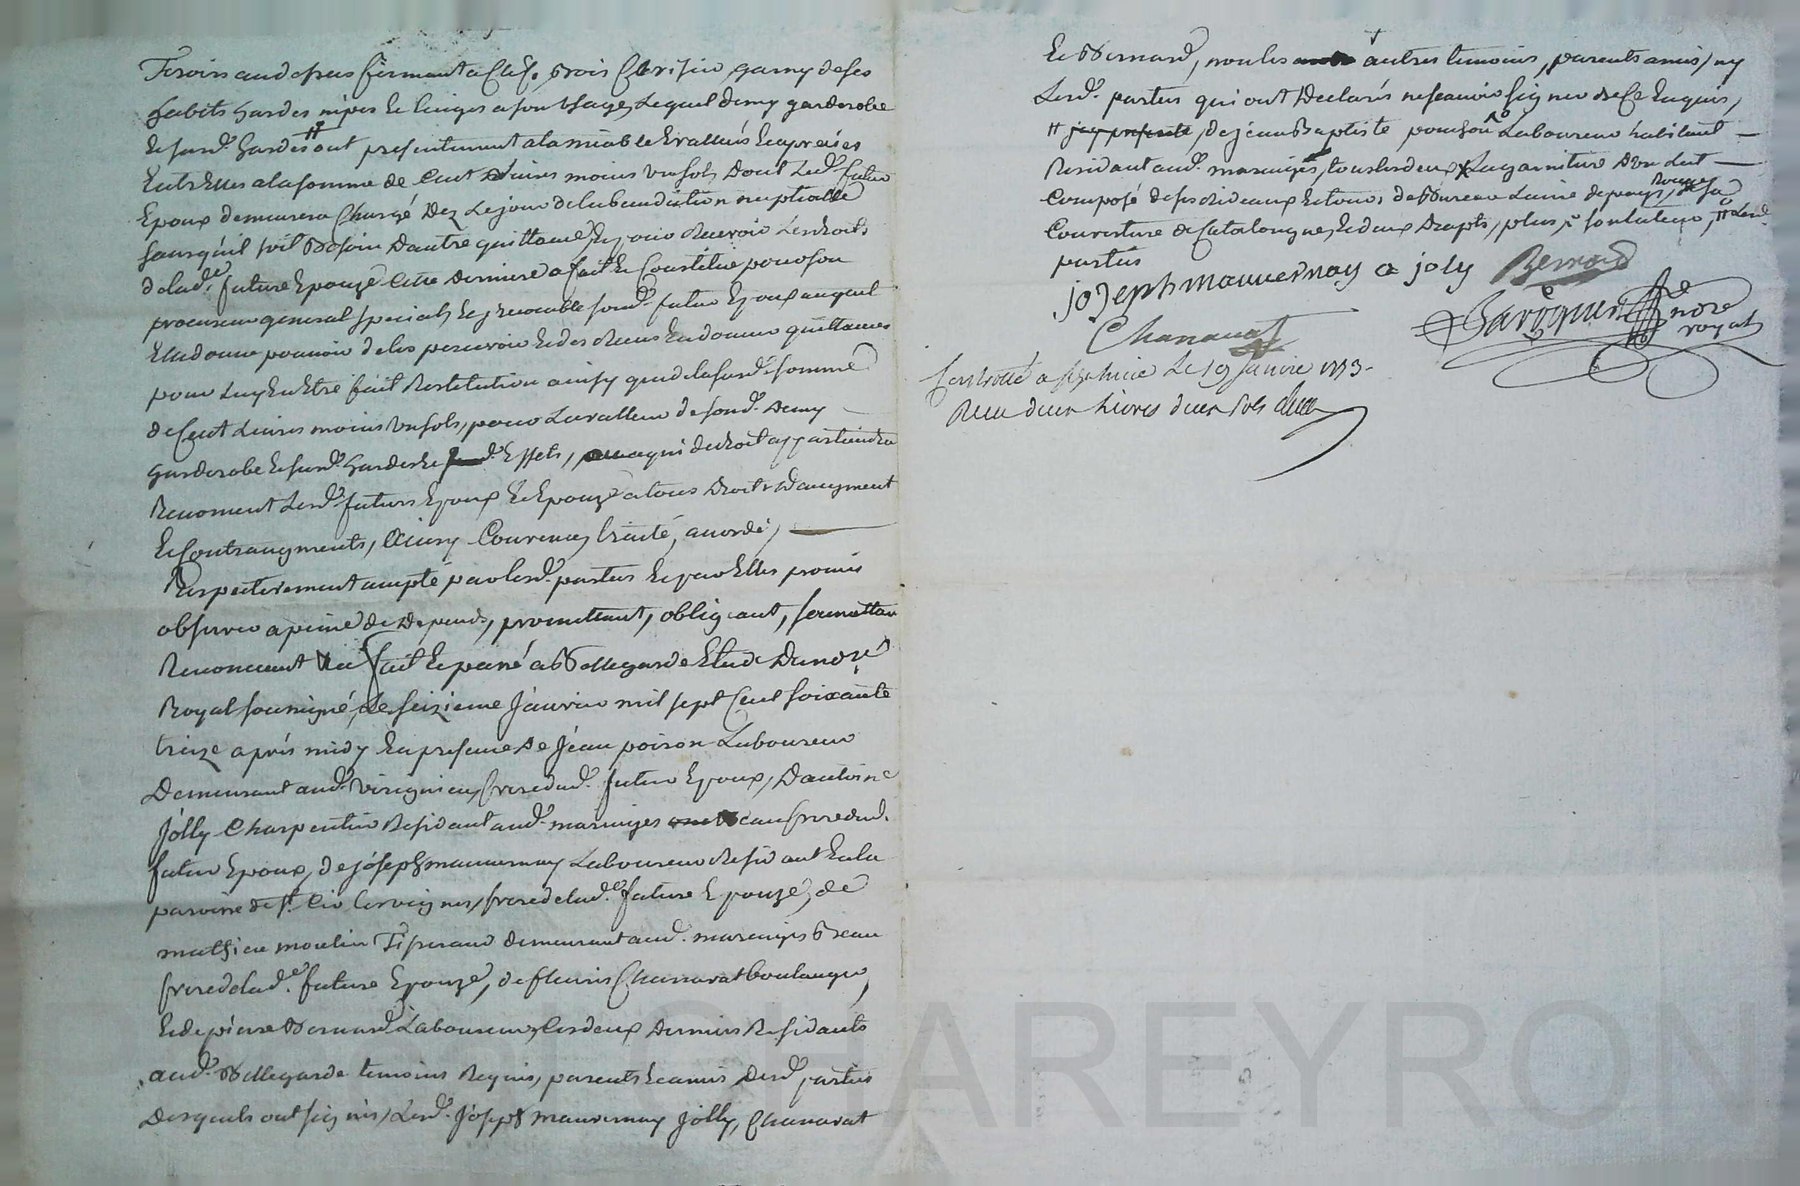 Tiroirs au dessus fermant a Clef. Bois Cerisier, garny de ses
habits hardes nipes Et linges a son Usage, Lequel demy garderobe
Et surd. hardes # ont presentement a la miable Evallués Et apreciés
Entr'Elles a la somme de Cent Livres moins un sols Dont Led. futur
Epoux demeurera Chargé Dez Le jour de la benediction nuptialle
sans qu'il soit Besoin D'autre quittance, Et pour Recevoir Les droits
de lad.e future Epouze Cette Derniere a fait Et Constitué pour son
procureur general special, Et jrrevocable sond. futur Epoux auquel
Elle donne pouvoir de les percevoir Et des Reçus En donner quittances
pour Luy En Etre fait Restitution ainsy que de la susd. somme
de Cent Livres moins un sols, pour La valleur de sond. Demy
garderobe Et surd. hardes Et Effets, a qui de droit appartiendra
Renoment Lesd. futurs Epoux Et Epouze a tous Droits D'augment
Et Contraugments, Ainsy Convenu, traité, acordé,
Respectivement accepté par lesd. parties Et par Elles promis
observer a peine de Depends, promettant, obligeant, soumettant
Renonceant &c fait Et passé a Bellegarde Etude Du no.re
Royal soussigné, Le seizieme Janvier mil sept Cent soixante
treize après midy En presence De Jean poizon Laboureur
Demeurant aud. Virignieu, frere dud. futur Epoux, D'antoine
Jolly Charpentier Residant aud. maringes beau frere dud.
futur Epoux, de joseph mauvernay Laboureur Residant En la
paroisse de St. Cir Les vignes, frere de lad.e future Epouze, de
mathieu moulin Tisserand demeurant aud. maringes Beau
frere de lad.e future Epouze, de fleuris Chanavat boulanger,
Et de pierre Bernard Laboureur, Les deux Derniers Residants
aud. Bellegarde temoins Requis, parents Et amis Desd. parties
Desquels ont signés, Lesd. Joseph mauvernay Jolly, Chanavat
Et Bernard, non les autres temoins, parents amis, ny
Lesd. parties qui ont Declarés ne scavoir signer de Ce Enquis,
# de jean Baptiste ponchon Laboureur habitant
Residant aud. maringes, tous les deux x La garniture d'un Lit
Composé de ses Rideaux Et tour, de Bureau Laine de pays, Rouge, de sa
Couverture de Catalongne, Et deux Drapts, plus,
parties
joseph mauvernay a joly Bernard
Chanavat
no.re
royal
Controllé a Le 19 Janvier 1773.
Reçu deux Livres deux sols
CHAREYRON